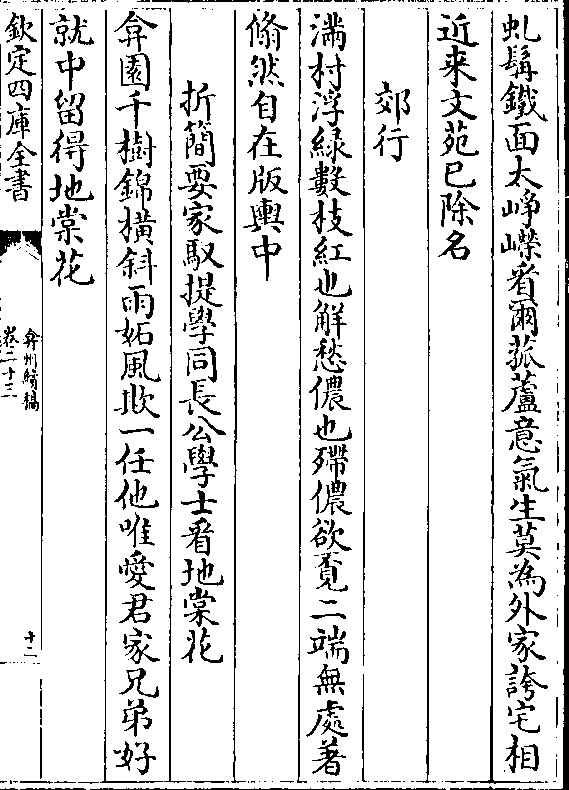 虬髯鐵面太崢嶸看爾菰蘆意氣生莫為外家誇宅相
近来文苑已除名
郊行
滿村浮綠數枝紅也解愁儂也殢儂欲覓二端無處著
翛然自在版輿中
折簡要家馭提學同長公學士看地棠花
弇園千樹錦橫斜雨妬風欺一任他唯愛君家兄弟好
就中留得地棠花
欽定四庫全書
弇州續稿
卷二十三
十二